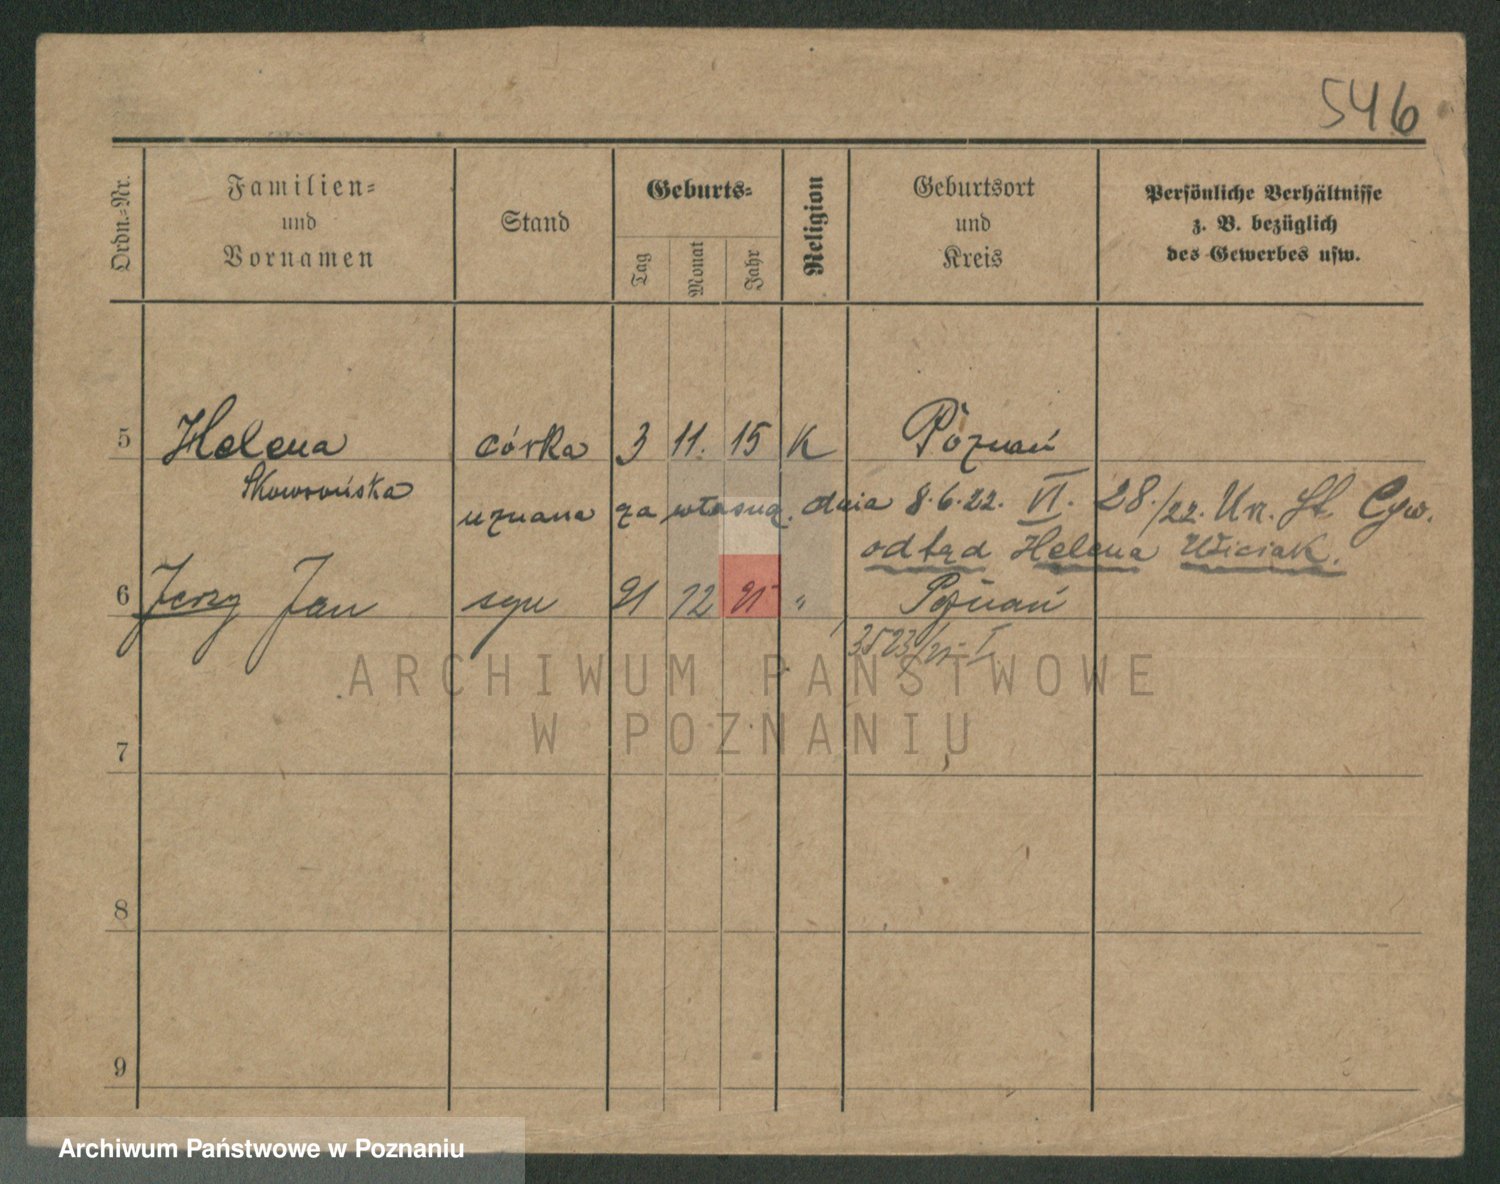 546
Ordn.-Nr.
Familien-
und
Vornamen
Stand
Geburts-
Tag
Monat
Jahr
Religion
Geburtsort
und
Kreis
Persönliche Verhältnisse
z. B. bezüglich
des Gewerbes usw.
5 Helena córka 3 11. 15 K Poznań
Skowrońska
uznana za własną. dnia 8.6.22. VI. 28./22. Urz. St. Cyw.
odtąd Helena Wiciak.
6 Jerzy Jan syn 21 12 25 " Poznań
3523/25 I
ARCHIWUM PAŃSTWOWE
W POZNANIU
7
8
9
Archiwum Państwowe w Poznaniu